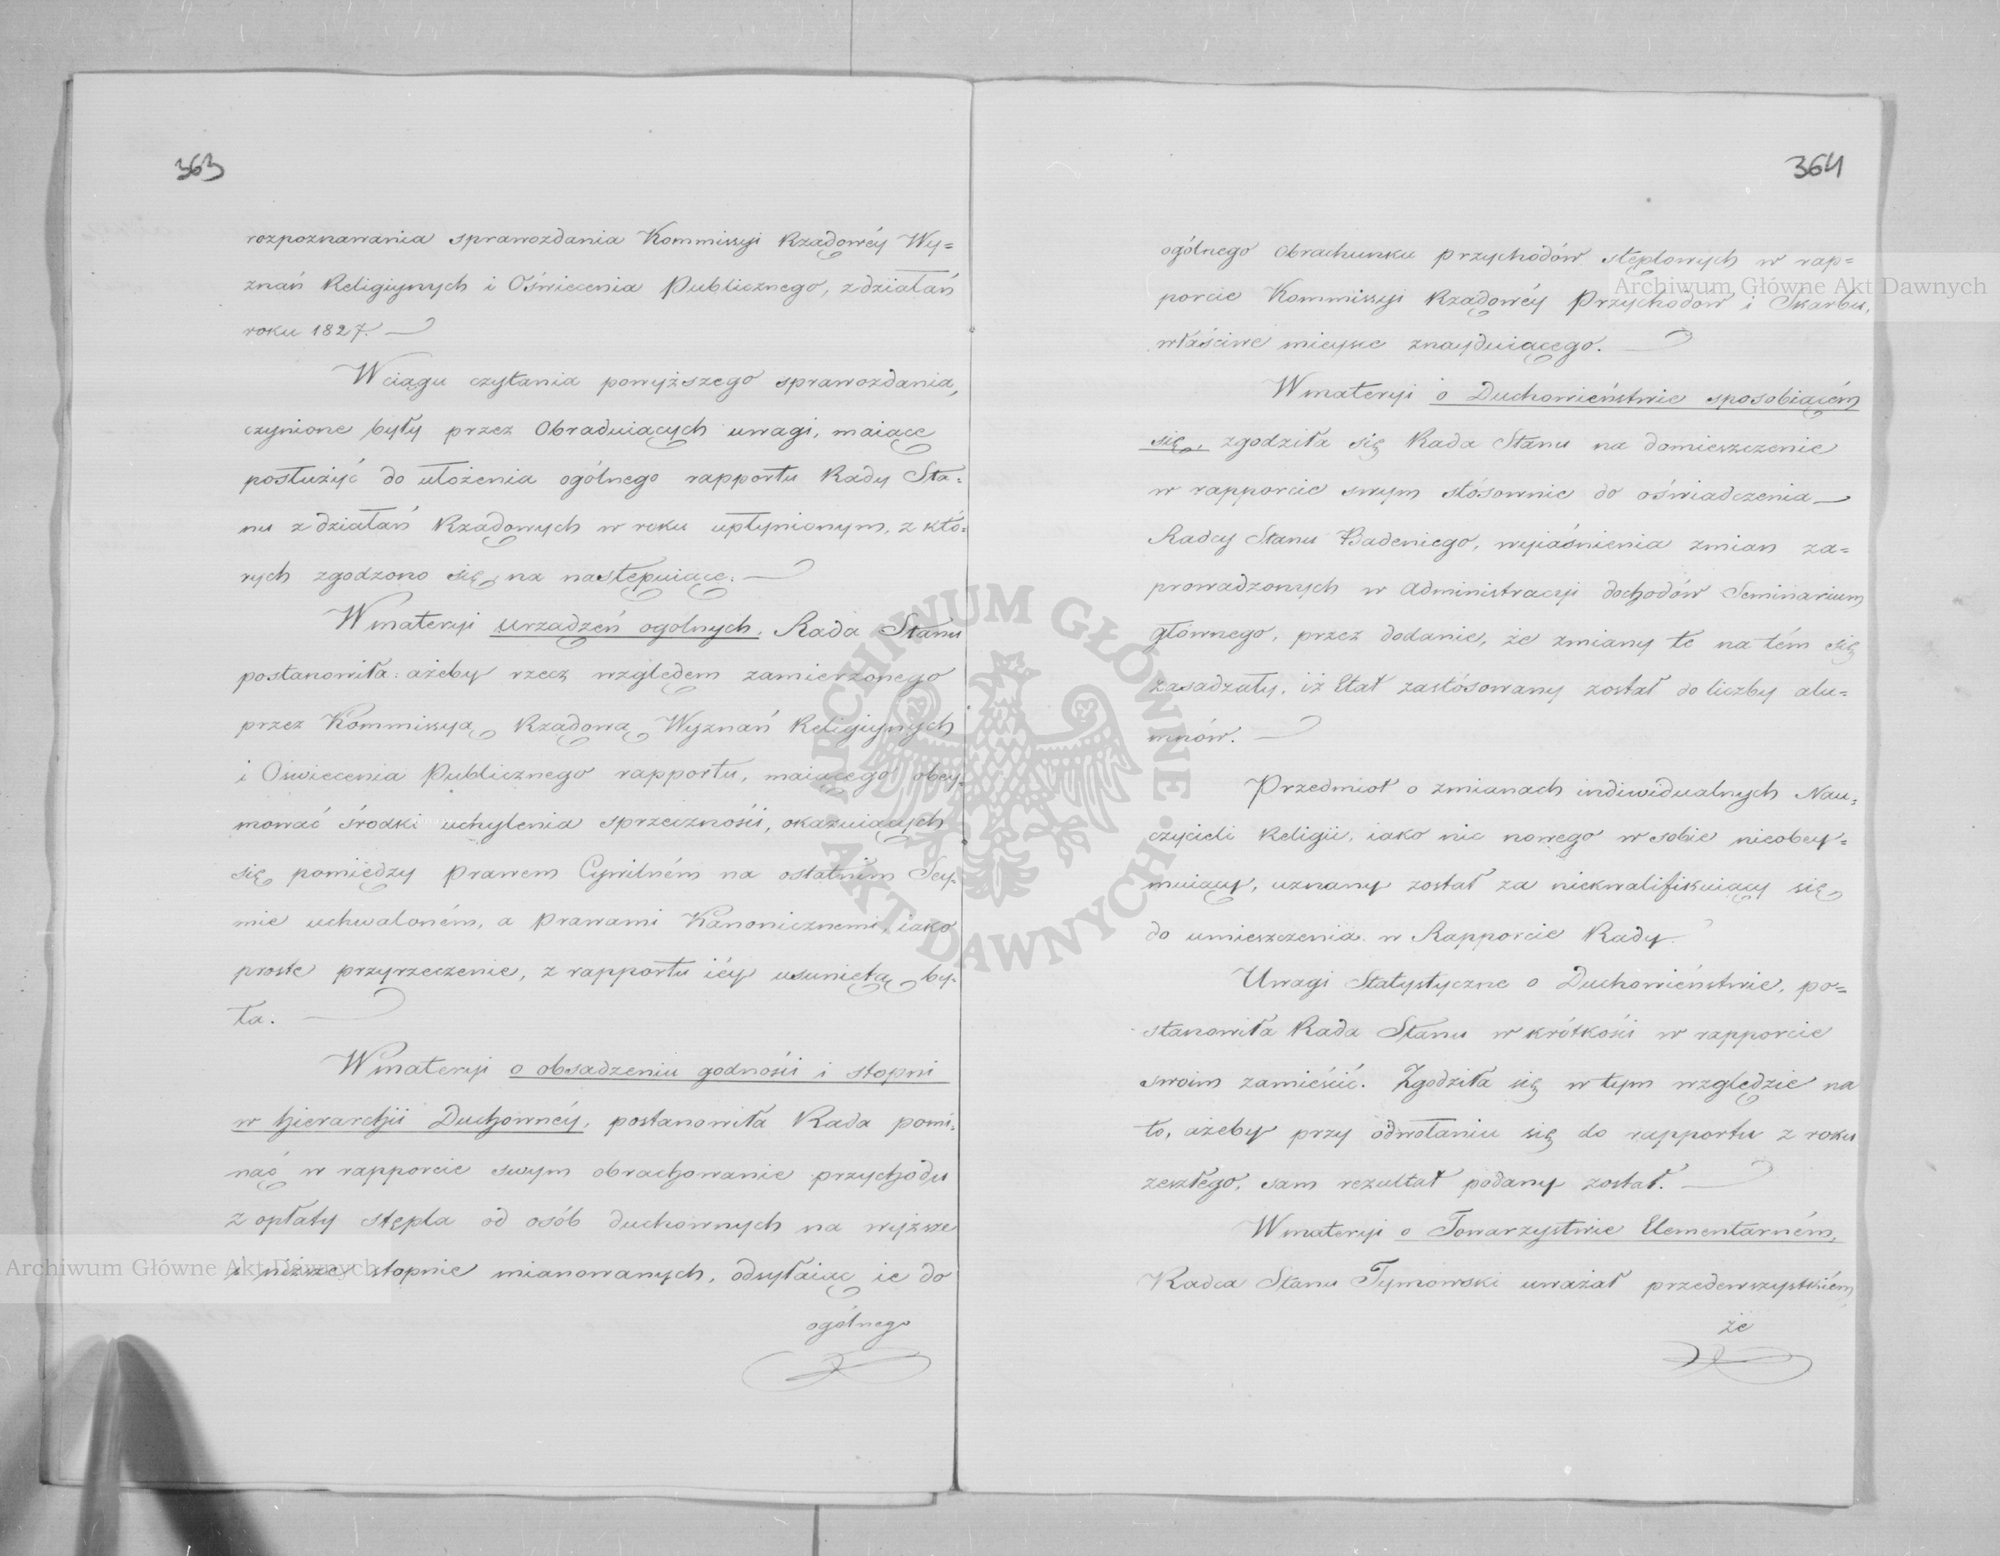 363
rozpoznawania sprawozdania Kommissyi Rządowéy Wy=
znań Religiynych i Oświecenia Publicznego, z działań
roku 1827.
W ciągu czytania powyższego sprawozdania,
czynione były przez Obraduiących uwagi, maiące
posłużyć do ułożenia ogólnego rapportu Rady Sta=
nu z działań Rządowych w roku upłynionym, z któ=
rych zgodzono się na następuiące.
W materyi urządzeń ogólnych, Rada Stanu
postanowiła: ażeby rzecz względem zamierzonego
przez Kommissyą Rządową Wyznań Religiynych
i Oświecenia Publicznego rapportu, maiącego obey=
mować środki uchylenia sprzeczności, okazuiących
się pomiędzy Prawem Cywilném na ostatnim Sey=
mie uchwaloném, a Prawami Kanonicznemi, iako
proste przyrzeczenie, z rapportu iéy usuniętą by=
ła.
W materyi o obsadzeniu godności i stopni
w hierarchii Duchownéy, postanowiła Rada pomi=
nąć w rapporcie swym obrachowanie przychodu
z opłaty stępla od osób duchownych na wyższe
i niższe stopnie mianowanych, odsyłaiąc ie do
ogólnego
364
ogólnego obrachunku przychodów stęplowych w rap=
porcie Kommissyi Rządowéy Przychodów i Skarbu,
właściwe mieysce znayduiącego.
W materyi o Duchowieństwie sposobiącém
się, zgodziła się Rada Stanu na domieszczenie
w rapporcie swym stósownie do oświadczenia
Radcy Stanu Badeniego, wyiaśnienia zmian za=
prowadzonych w Administracyi dochodów Seminarium
głównego, przez dodanie, że zmiany te na tém się
zasadzały, iż Etat zastósowany został do liczby alu=
mnów.
Przedmiot o zmianach indiwidualnych Nau=
czycieli Religii, iako nic nowego w sobie nieobey=
muiący, uznany został za niekwalifikuiący się
do umieszczenia w Rapporcie Rady.
Uwagi Statystyczne o Duchowieństwie, po=
stanowiła Rada Stanu w krótkości w rapporcie
swoim zamieścić. Zgodziła się w tym względzie na
to, ażeby przy odwołaniu się do rapportu z roku
zeszłego, sam rezultat podany został.
W materyi o Towarzystwie Elementarném,
Radca Stanu Tymowski uważał przedewszystkiém,
że
Archiwum Główne Akt Dawnych
Archiwum Główne Akt Dawnych
ARCHIWUM GŁÓWNE AKT DAWNYCH